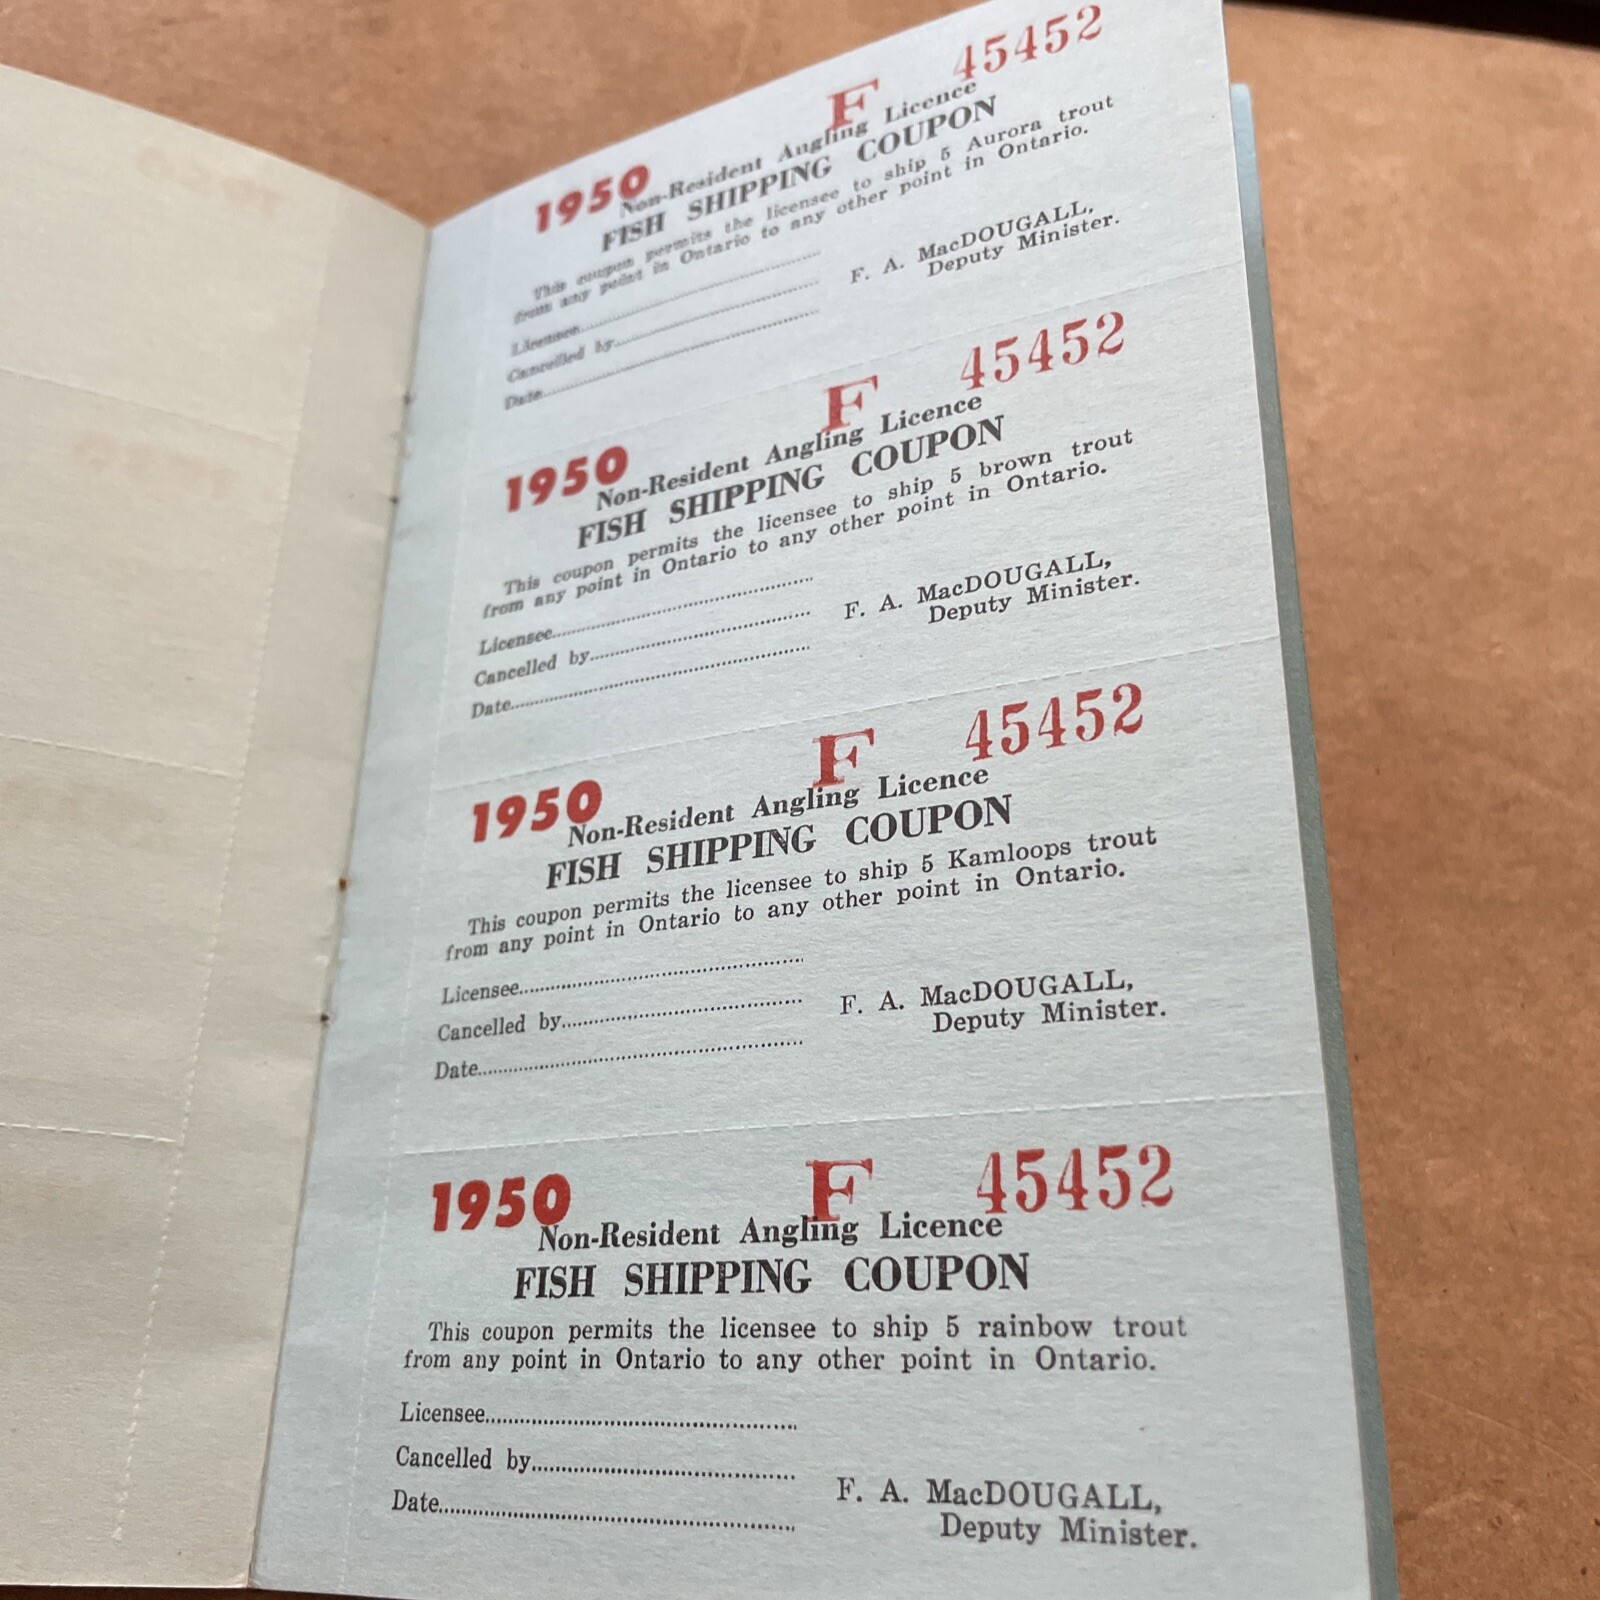 F 45452
1950 Non-Resident Angling Licence
FISH SHIPPING COUPON
This coupon permits the licensee to ship 5 Aurora trout
from any point in Ontario to any other point in Ontario.
Licensee
Cancelled by
Date
F. A. MacDOUGALL,
Deputy Minister.
F 45452
1950 Non-Resident Angling Licence
FISH SHIPPING COUPON
This coupon permits the licensee to ship 5 brown trout
from any point in Ontario to any other point in Ontario.
Licensee
Cancelled by
Date
F. A. MacDOUGALL,
Deputy Minister.
F 45452
1950 Non-Resident Angling Licence
FISH SHIPPING COUPON
This coupon permits the licensee to ship 5 Kamloops trout
from any point in Ontario to any other point in Ontario.
Licensee
Cancelled by
Date
F. A. MacDOUGALL,
Deputy Minister.
1950 F 45452
Non-Resident Angling Licence
FISH SHIPPING COUPON
This coupon permits the licensee to ship 5 rainbow trout
from any point in Ontario to any other point in Ontario.
Licensee
Cancelled by
Date
F. A. MacDOUGALL,
Deputy Minister.